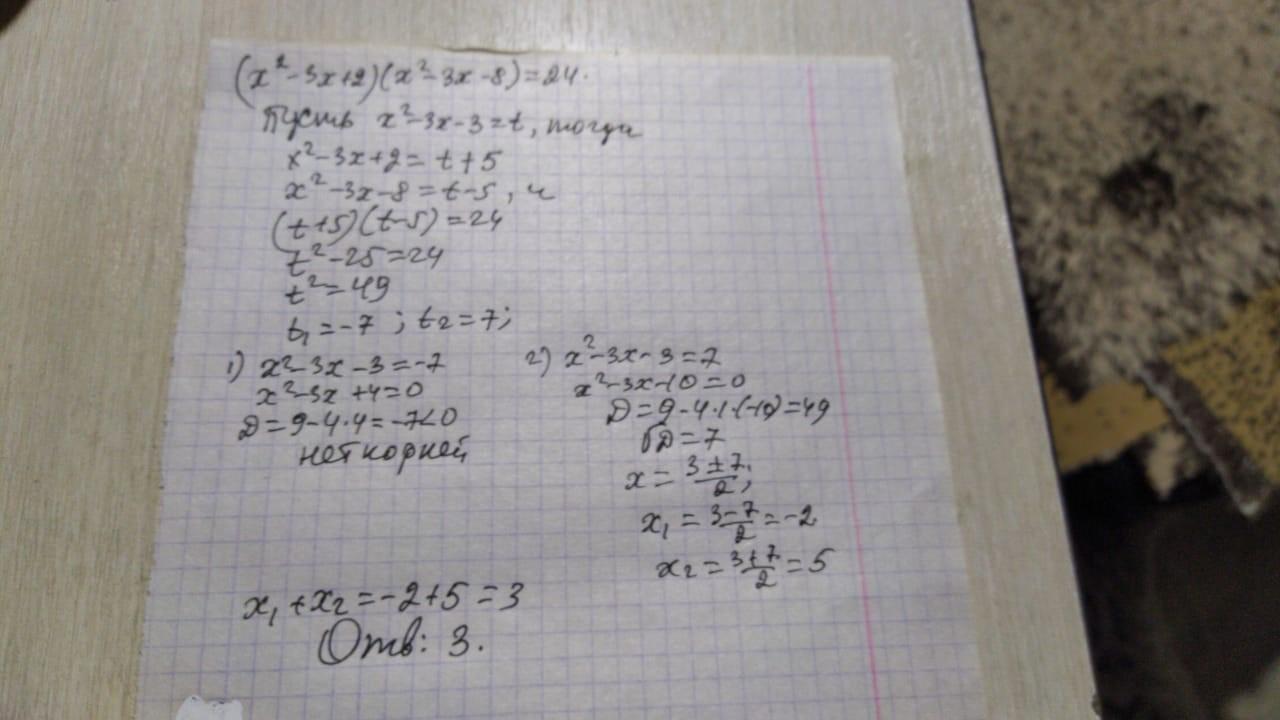 (x²-3x+2)(x²-3x-8)=24.
Пусть x²-3x-3=t, тогда
x²-3x+2=t+5
x²-3x-8=t-5, и
(t+5)(t-5)=24
t²-25=24
t²=49
t₁=-7; t₂=7;
1) x²-3x-3=-7
x²-3x+4=0
D=9-4·4=-7<0
нет корней
2) x²-3x-3=7
x²-3x-10=0
D=9-4·1·(-10)=49
√D=7
x=(3±7)/2;
x₁=(3-7)/2=-2
x₂=(3+7)/2=5
x₁+x₂=-2+5=3
Отв: 3.